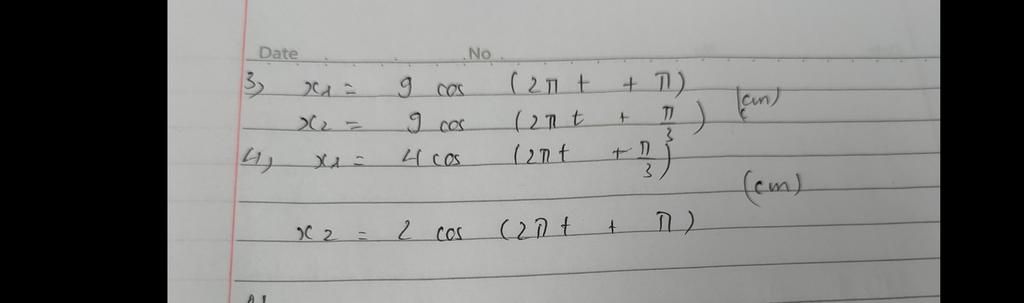 Date No
3, x1 = 9 cos (2π t + π)
x2 = 9 cos (2π t + π/3) (cm)
4, x1 = 4 cos (2πt + π/3)
(cm)
x2 = 2 cos (2π t + π)